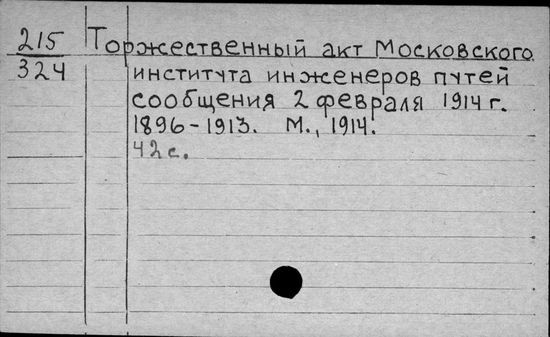 215
324
Торжественный акт Московского
института инженеров путей
сообщения 2 февраля 1914 г.
1896-1913. М., 1914.
42 с.